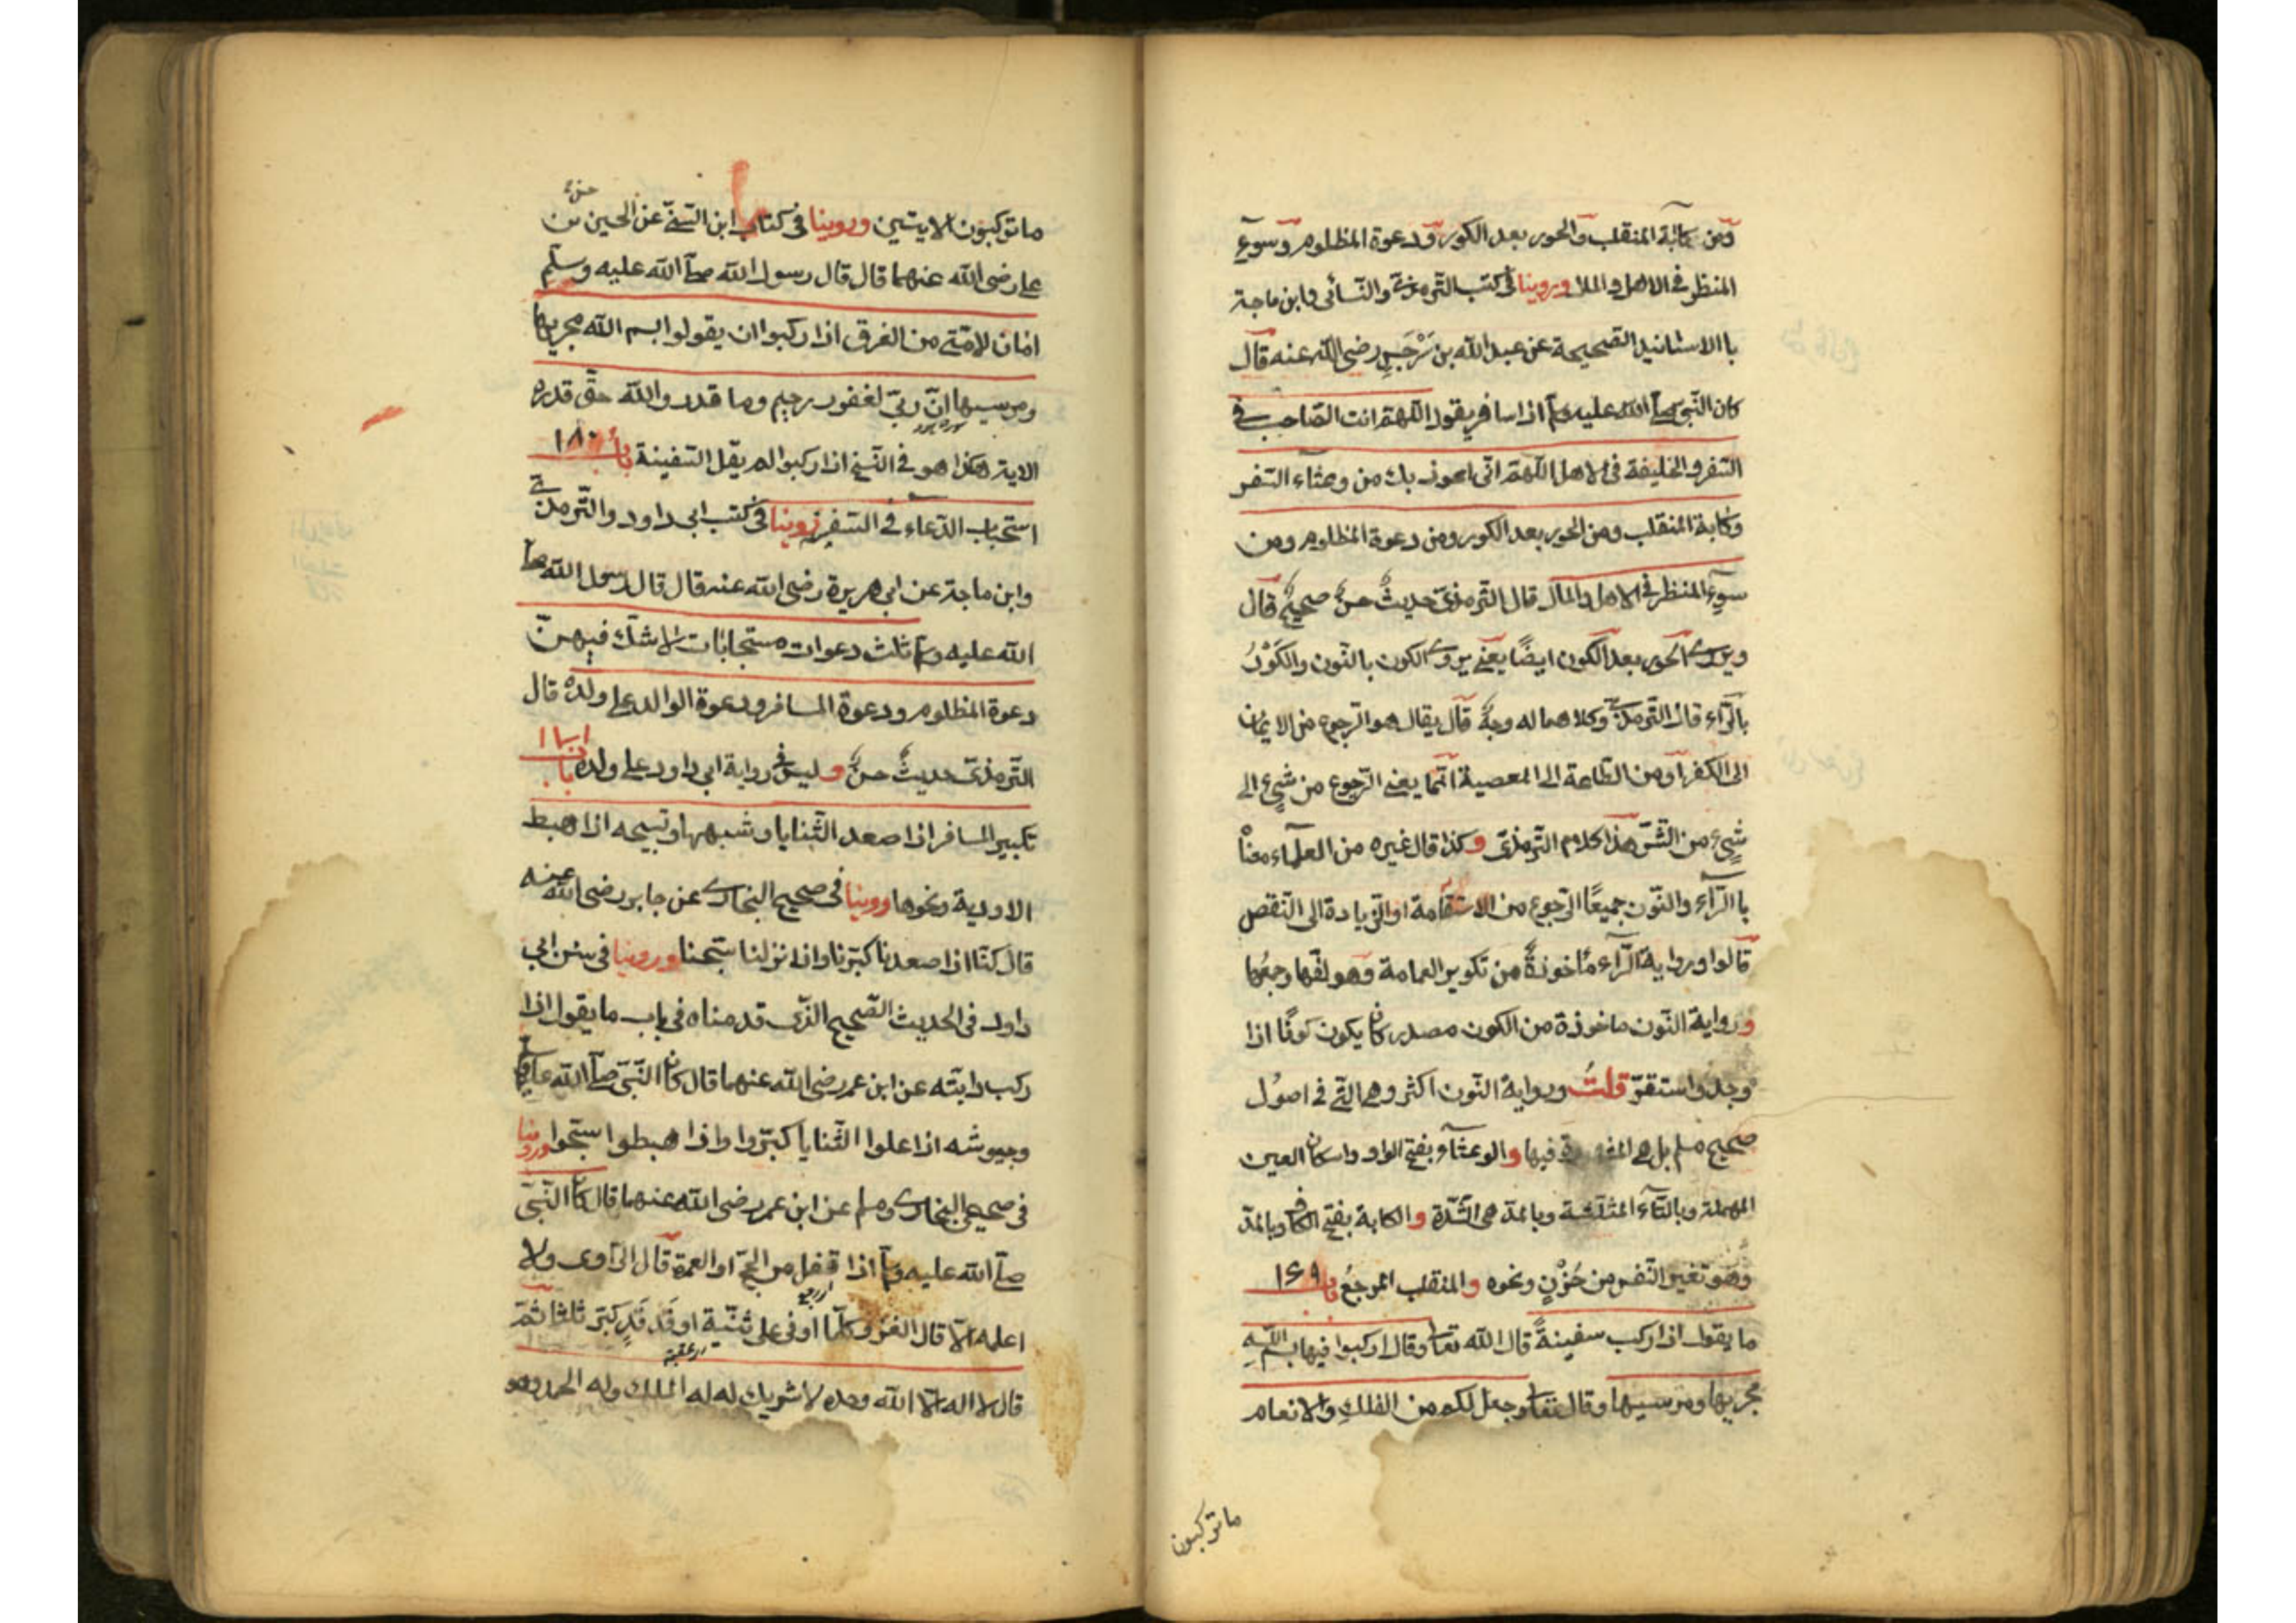 ومن كآبة المنقلب والحور بعد الكور ودعوة المظلوم وسوء
المنظر في الاهل والمال وروينا في كتب الترمذي والنسائي وابن ماجة
با الاسانيد الصحيحة عن عبد الله بن سَرْجَسٍ رضى الله عنه قال
كان النبي صلى الله عليه وسلم اذا سافر يقول اللهم انت الصاحب في
السفر والخليفة في الاهل اللهم انى اعوذ بك من وعثاء السفر
وكابة المنقلب ومن الحور بعد الكور ومن دعوة المظلوم ومن
سوء المنظر في الاهل والمال قال الترمذى حديثٌ حسنٌ صحيحٌ قال
ويروى الحور بعد الكون ايضًا يعني يروى الكون بالنون والكَوْرُ
بالرّاء قال الترمذي وكلاهما له وجهٌ قال يقال هو الرجوع من الايمان
الى الكفر او من الطاعة الى المعصية انّما يعني الرّجوع من شئ الى
شئ من الشرّ هذا كلام الترمذى وكذا قال غيره من العلماء معناه
با الرّاء والنّون جميعًا الرّجوع من الاستقامة او الزّيادة الى النقص
قالوا ورواية الرّاء ماخوذةٌ من تكوير العمامة وهو لفّها وجمعها
ورواية النّون ماخوذة من الكون مصدر كان يكون كونًا اذا
وجد واستقرّ قلتُ ورواية النّون اكثر وهى الّتي في اصُول
صحيح مسلم بل هى المشهورة فيها والوعثاء بفتح الواو واسكان العين
المهملة وبالثاء المثلّثة وبالمدّ هى الشّدّة والكابة بفتح الكاف وبالمدّ
وهو تغير النّفس من حُزْنٍ ونحوه والمنقلب المرجعُ باب ١٤٩
ما يقول اذا ركب سفينةً قال الله تعا وقال اركبوا فيها بسم اللهِ
مجريها ومرسيها وقال تعا وجعل لكم من الفلك والانعام
ماتركبون
ماتركبون الايتين وروينا في كتاب ابن السّنّي عن الحسين بن
على رضى الله عنهما قال قال رسول الله صلى الله عليه وسلم
امان لامّتى من الغرق اذا ركبوا ان يقولوا بسم الله مجريها
ومرسيها انّ ربّي لغفور رحيم وما قدروا الله حقّ قدره
الاية هكذا هو في النّسخ اذا ركبوا لم يقل السّفينة باب ١٨٠
استحباب الدّعاء في السّفر روينا في كتب ابى داود والتّرمذي
وابن ماجة عن ابى هريرة رضى الله عنه قال قال رسول الله صلى
الله عليه وسلم ثلث دعوات مستجابات لا شكّ فيهنّ
دعوة المظلوم ودعوة المسافر ودعوة الوالد على ولده قال
التّرمذىّ حديثٌ حسنٌ وليس في رواية ابى داود على ولده باب ١٨١
تكبير المسافر اذا صعد الثّنايا وشبهها وتسبيحه اذا هبط
الاودية ونحوها روينا في صحيح البخارى عن جابر رضى الله عنه
قال كنّا اذا صعدنا كبّرنا واذا نزلنا سبّحنا وروينا في سنن ابى
داود في الحديث الصّحيح الذّى قدمناه في باب ما يقول اذا
ركب دابّته عن ابن عمر رضى الله عنهما قال كان النّبىّ صلى الله عليه وسلم
وجيوشه اذا علوا الثّنايا كبّروا واذا هبطوا سبّحوا وروينا
في صحيحى البخارى ومسلم عن ابن عمر رضى الله عنهما قال كان النّبىّ
صلى الله عليه وسلم اذا قفل من الحجّ او العمرة قال الرّاوى ولا
اعلمه الّا قال الغزو كلّما اوفى على ثنيّة او فَدْفَدٍ كبّر ثلثا ثمّ
قال لا اله الّا الله وحده لا شريك له له الملك وله الحمد وهو